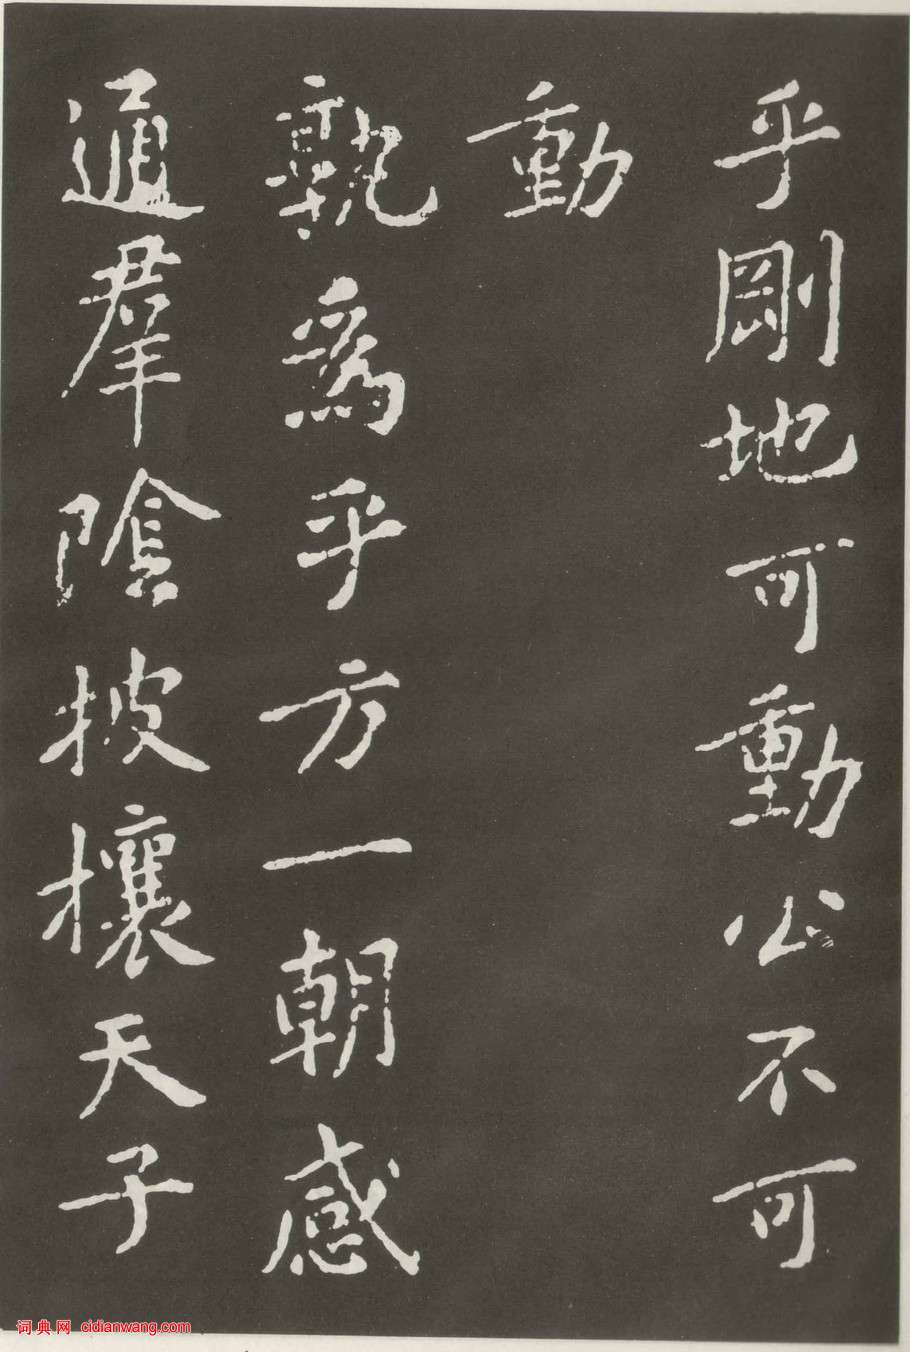 乎剛地可動公不可
動
孰為乎方一朝感
通群陰披攘天子
词典网 cidianwang.com